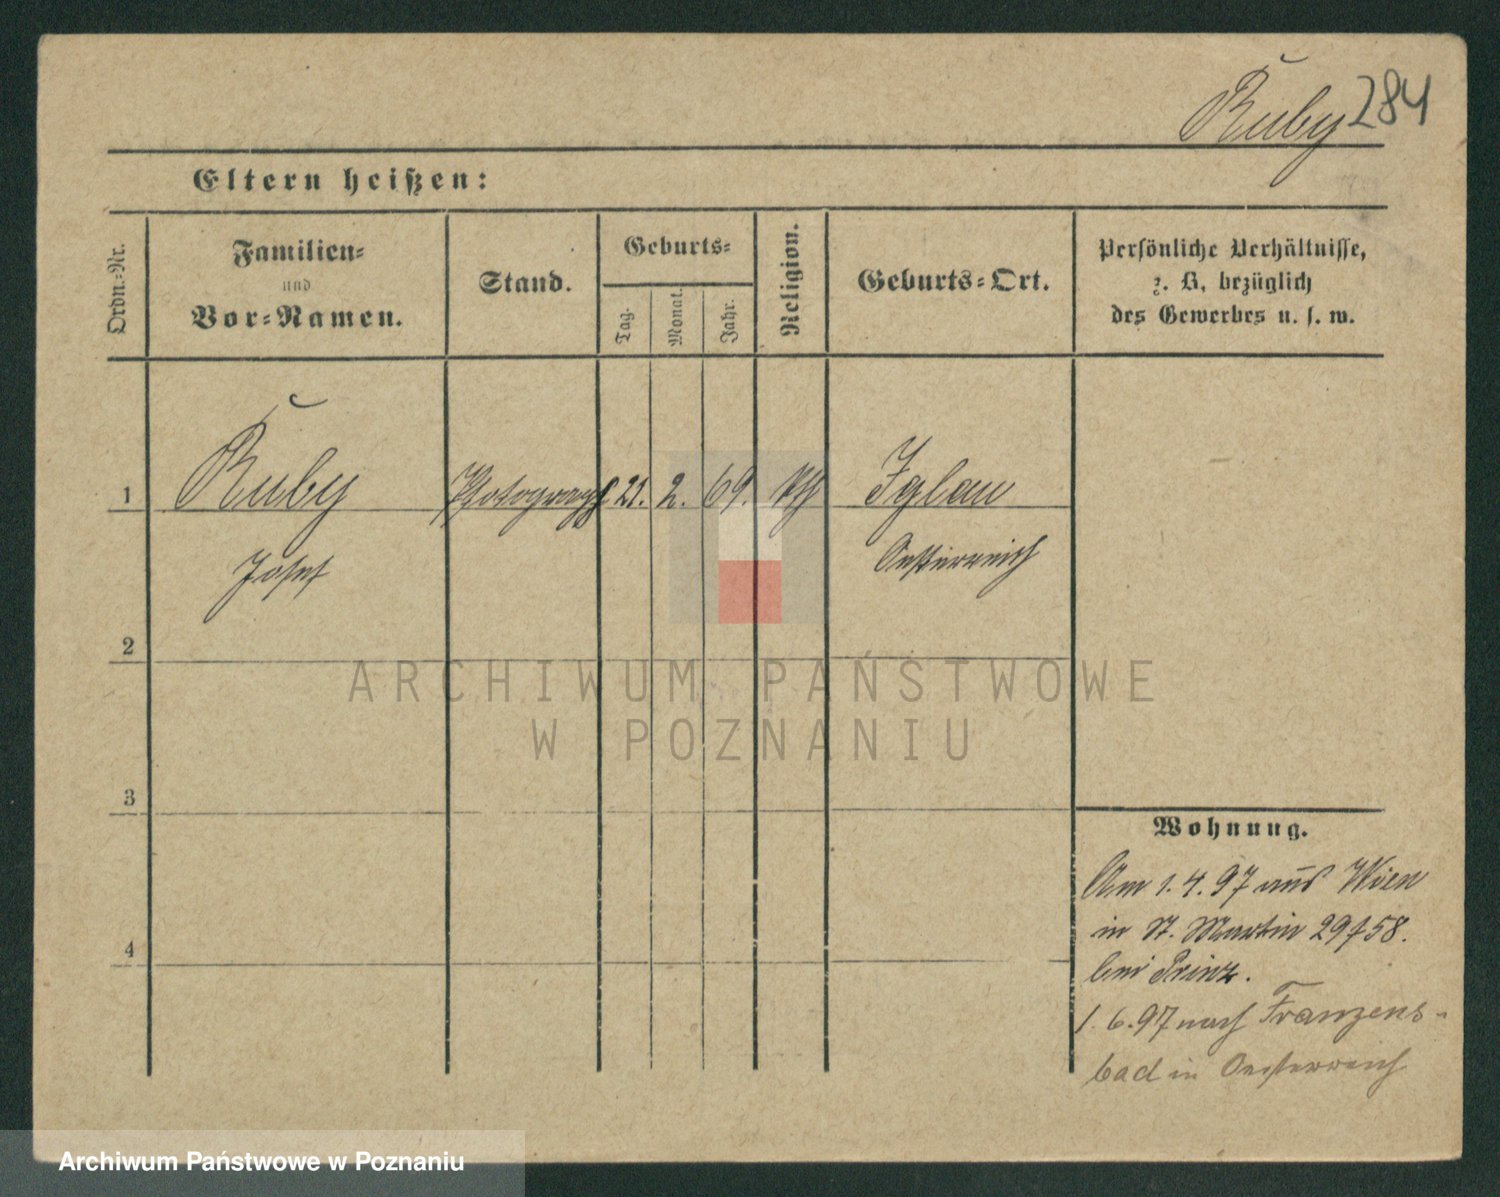 Ruby 284
Eltern heißen:
Ordn.-Nr.
Familien-
und
Vor-Namen.
Stand.
Geburts-
Tag.
Monat.
Jahr.
Religion.
Geburts-Ort.
Persönliche Verhältnisse,
z. B. bezüglich
des Gewerbes u. s. w.
1 Ruby Photograph 21. 2. 69. kth Iglau
Josef Oesterreich
2
ARCHIWUM PAŃSTWOWE
W POZNANIU
3
Wohnung.
Am 1.4.97 aus Wien
in St. Martin 29/58.
bei Prinz.
4
1.6.97 nach Franzens-
bad in Oesterreich
Archiwum Państwowe w Poznaniu